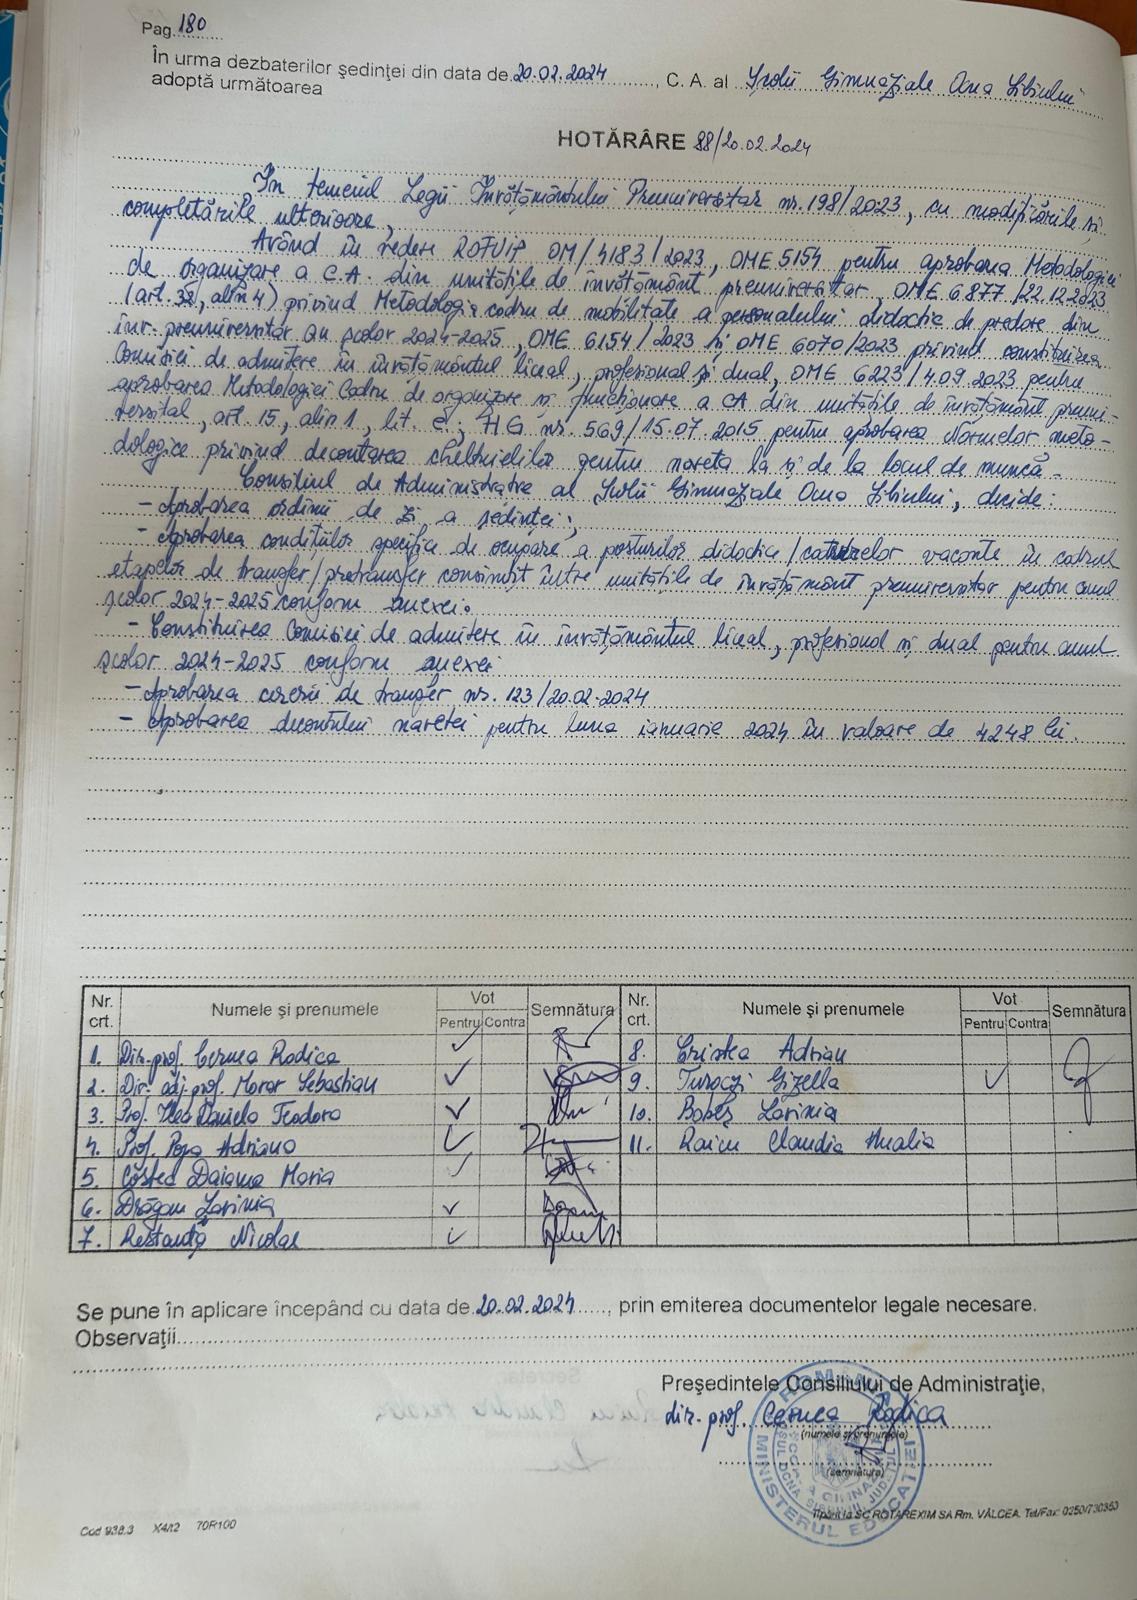 Pag. 180
În urma dezbaterilor şedinţei din data de 20.02.2024, C. A. al Școlii Gimnaziale Ocna Sibiului
adoptă următoarea
HOTĂRÂRE 88/20.02.2024
În temeiul Legii Învățământului Preuniversitar nr. 198/2023, cu modificările și
completările ulterioare,
Având în vedere ROFUIP OM/4183/2023, OME 5154 pentru aprobarea Metodologiei
de organizare a C.A. din unitățile de învățământ preuniversitar, OME 6877/22.12.2023
(art. 38, alin 4) privind Metodologia cadru de mobilitate a personalului didactic de predare din
înv. preuniversitar an școlar 2024-2025, OME 6154/2023 și OME 6070/2023 privind constituirea
Comisiei de admitere în învățământul liceal, profesional și dual, OME 6223/4.09.2023 pentru
aprobarea Metodologiei Cadru de organizare și funcționare a CA din unitățile de învățământ preuni-
versital, art. 15, alin 1, lit. HG nr. 569/15.07.2015 pentru aprobarea Normelor meto-
dologice privind decontarea cheltuielilor pentru naveta la și de la locul de muncă.
Consiliul de Administrație al Școlii Gimnaziale Ocna Sibiului, decide:
- Aprobarea ordinii de zi a ședinței;
- Aprobarea condițiilor specifice de ocupare a posturilor didactice/catedrelor vacante în cadrul
etapelor de transfer/pretransfer consimțit între unitățile de învățământ preuniversitar pentru anul
școlar 2024-2025 conform anexei.
- Constituirea Comisiei de admitere în învățământul liceal, profesional și dual pentru anul
școlar 2024-2025 conform anexei
- Aprobarea cererii de transfer nr. 123/20.02.2024
- Aprobarea decontului navetei pentru luna ianuarie 2024 în valoare de 4248 lei.
Nr. crt. Numele şi prenumele Vot Pentru Contra Semnătura Nr. crt. Numele şi prenumele Vot Pentru Contra Semnătura
1. Dir. prof. Cernea Rodica 8. Cristea Adrian
2. Dir. adj. prof. Morar Sebastian 9. Turoczi Gizella
3. Prof. Daniela Teodora 10. Bobeș Lavinia
4. Prof. Popa Adriana 11. Raiciu Claudia Amalia
5. Costea Daiana Maria
6. Drăgan Lavinia
7. Restanția Nicolae
Se pune în aplicare începând cu data de 20.02.2024, prin emiterea documentelor legale necesare.
Observaţii
Preşedintele Consiliului de Administraţie,
dir. prof. Cernea Rodica
(numele şi prenumele)
(semnătura)
ROMÂNIA
MINISTERUL EDUCAȚIEI
Cod 938.3 X4/t2 70R100
Tipărit la SC ROTAREXIM SA Rm. VÂLCEA. Tel/Fax: 0250/730350